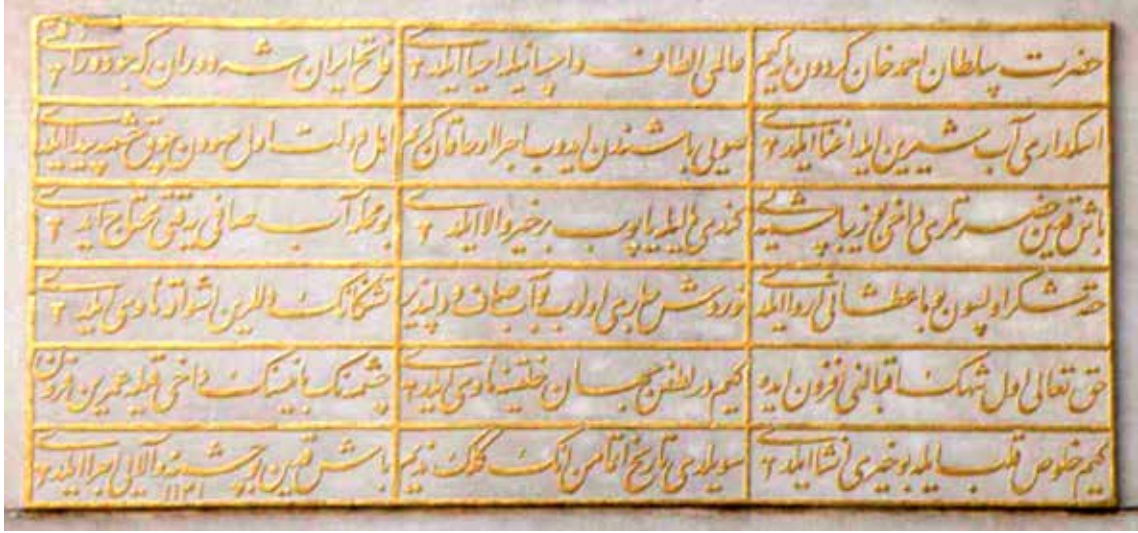 حضرت سلطان احمد خان گردون بارکیم
عالمی الطاف و احسانیله احیا ایلدی
فاتح ایران شه دوران که جود و رأفتی
اسکداری آب شیرین ایله اغنا ایلدی
صویی باشندن ایدوب اجرا او خاقان کریم
اهل دولت اول صودن چوق چشمه پیدا ایلدی
باش قدین حضرتلری داخی بو زیبا چشمه یی
کندی مالیله یاپوب بر خیر والا ایلدی
بو محله آب صافی یه قتی محتاج ایدی
حقه شکر اولسون عطشانی اروا ایلدی
جاری اولوب بو آب صاف و دلپذیر
تشنکانک دللرین مأوی ایلدی
حق تعالی اول شهک اقبالنی افزون ایده
کیم در لطفن جهان خلقینه مأوی ایلدی
چشمه نک بانیسنک داخی قیله عمرین فزون
کیم خلوص قلب ایله بو خیری انشا ایلدی
سویلدی تاریخ اتمامن انک کلک ندیم
باش قدین بو چشمه دن آلایی اجرا ایلدی ١١٤١